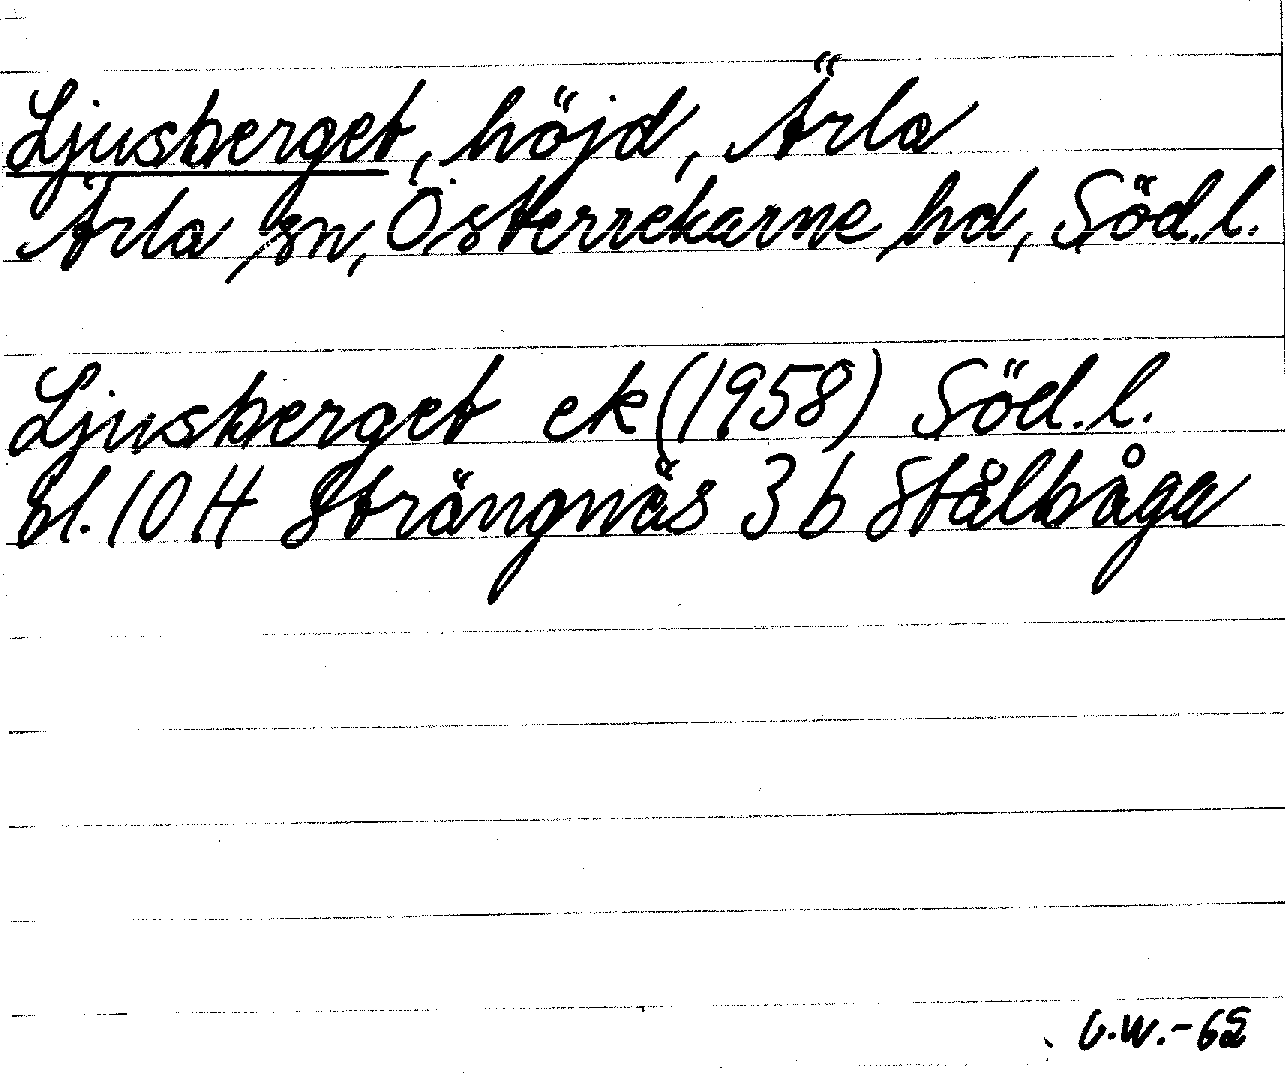 Ljusberget, höjd, Ärla
Ärla sn, Österrekarne hd, Söd.l.
Ljusberget ek (1958) Söd.l.
bl. 10 H Strängnäs 3 b Stålbåga
G.W.-62